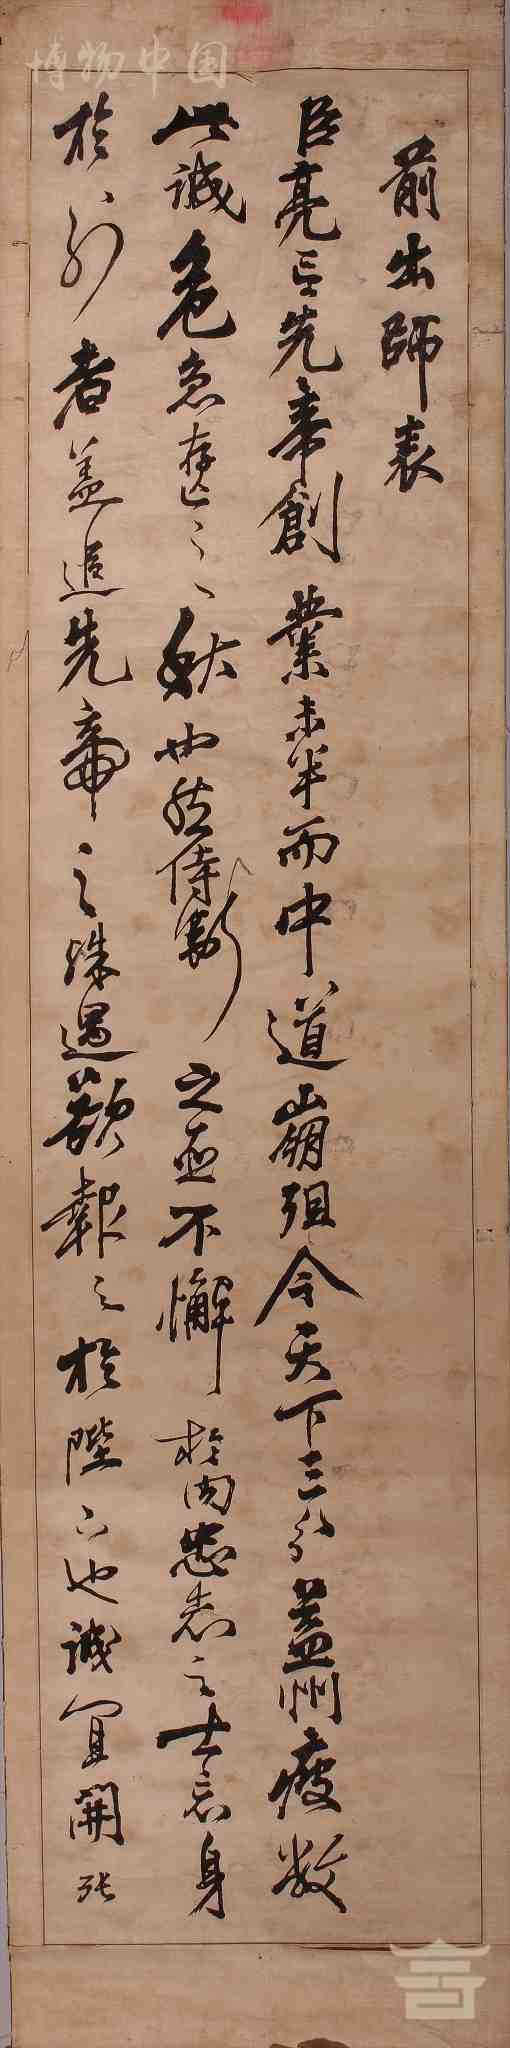 博物中国
前出師表
臣亮言先帝創業未半而中道崩殂今天下三分益州疲敝
此誠危急存亡之秋也然侍衛之臣不懈於内忠志之士忘身
於外者蓋追先帝之殊遇欲報之於陛下也誠宜開張